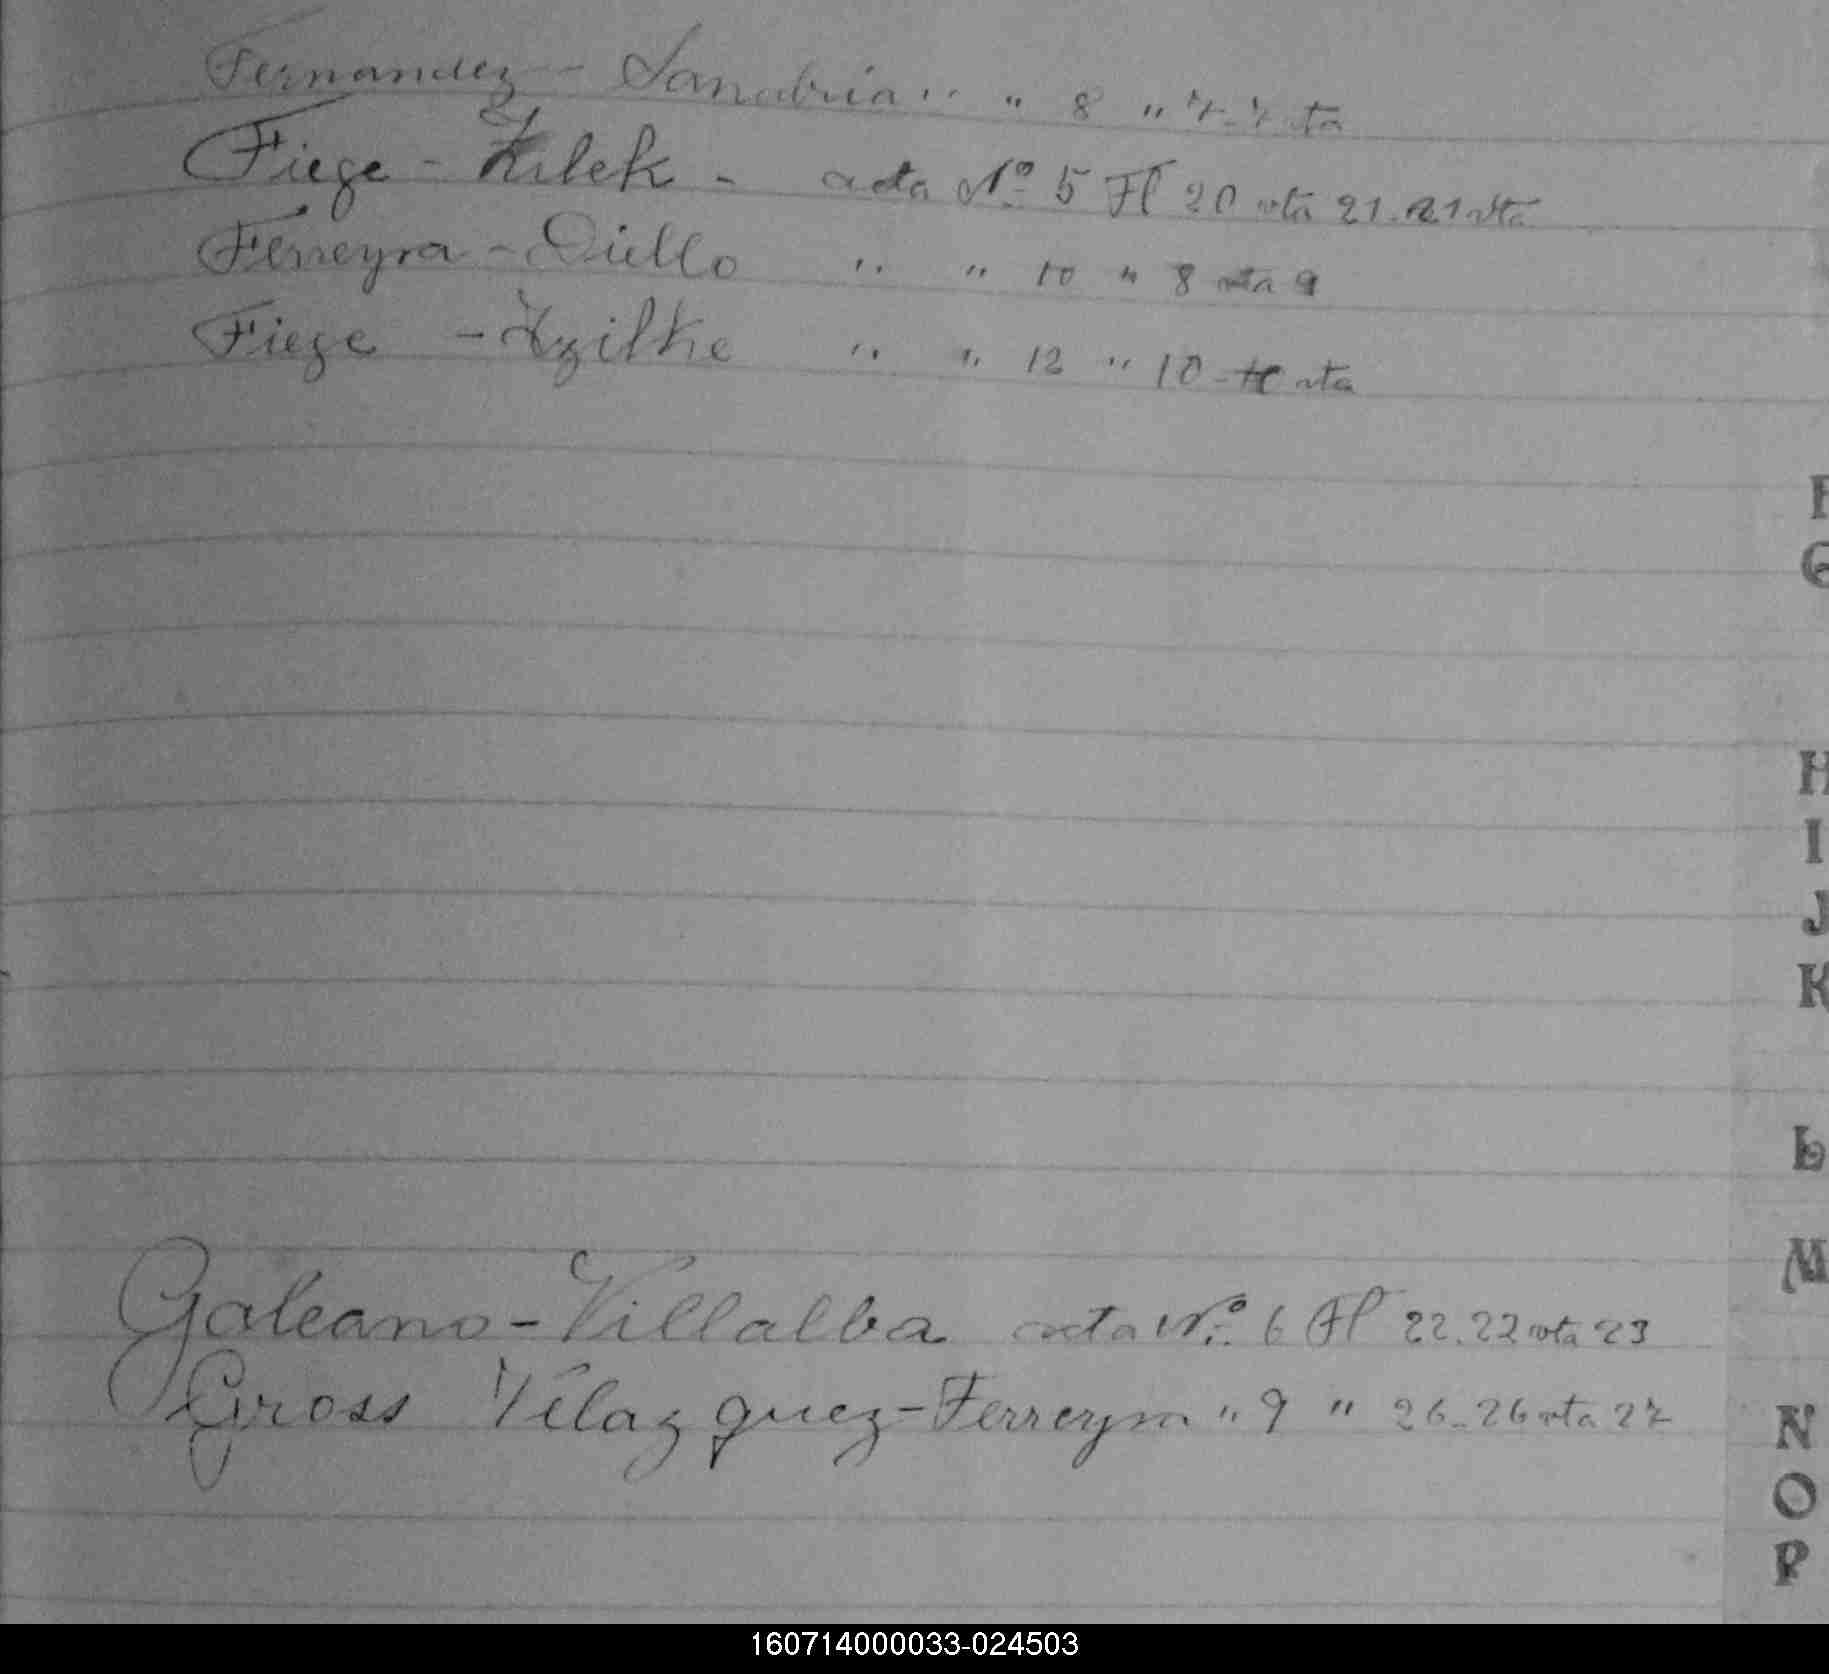 Fernandez - Sanabria " " 8 " 7-7 vta
Fiege - Zilek - acta Nº 5 Fl 20 vta 21.21 vta
Ferreyra - Diello " " 10 " 8 vta 9
Fiege - Zzilke " " 12 " 10 - vta
F
G
H
I
J
K
L
M
Galeano - Villalba acta Nº 6 Fl 22.22 vta 23
Gross Vélazquez - Ferreyra " 9 " 26-26 vta 27
N
O
P
160714000033-024503